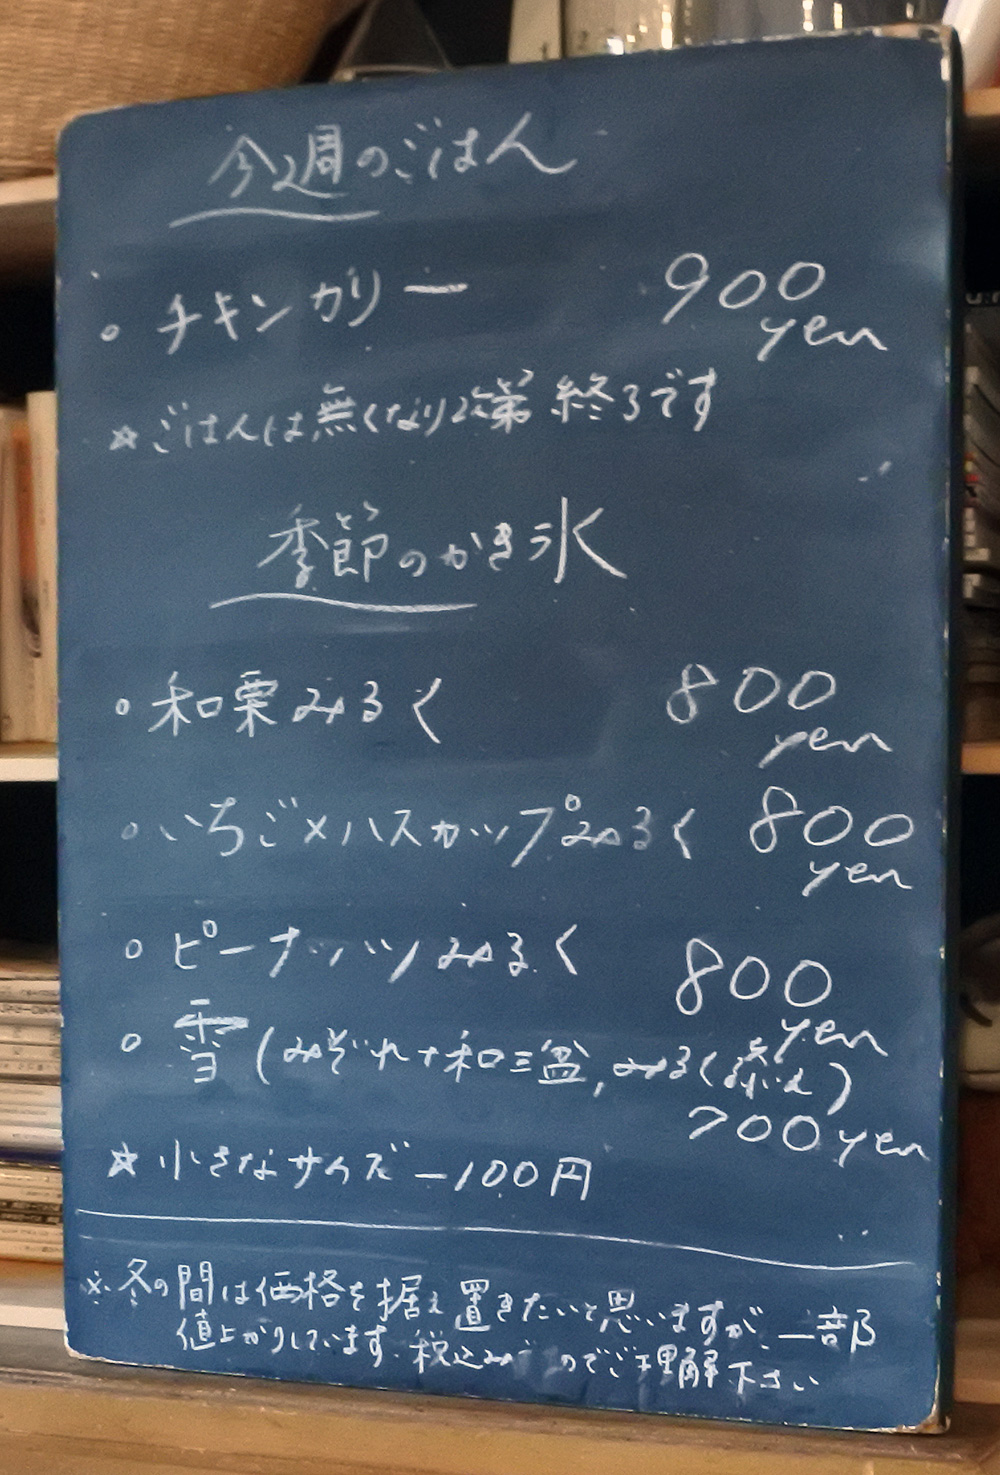 今週のごはん
○ チキンカリー 900 yen
☆ ごはんは無くなり次第終了です
季節のかき氷
○ 和栗みるく 800 yen
○ いちご×ハスカップみるく 800 yen
○ ピーナッツみるく 800 yen
○ 雪(みぞれ+和三盆,みるく添え) 700 yen
☆ 小さなサイズ -100円
※ 冬の間は価格を据え置きたいと思いますが、一部
値上がりしています。税込みですのでご理解下さい